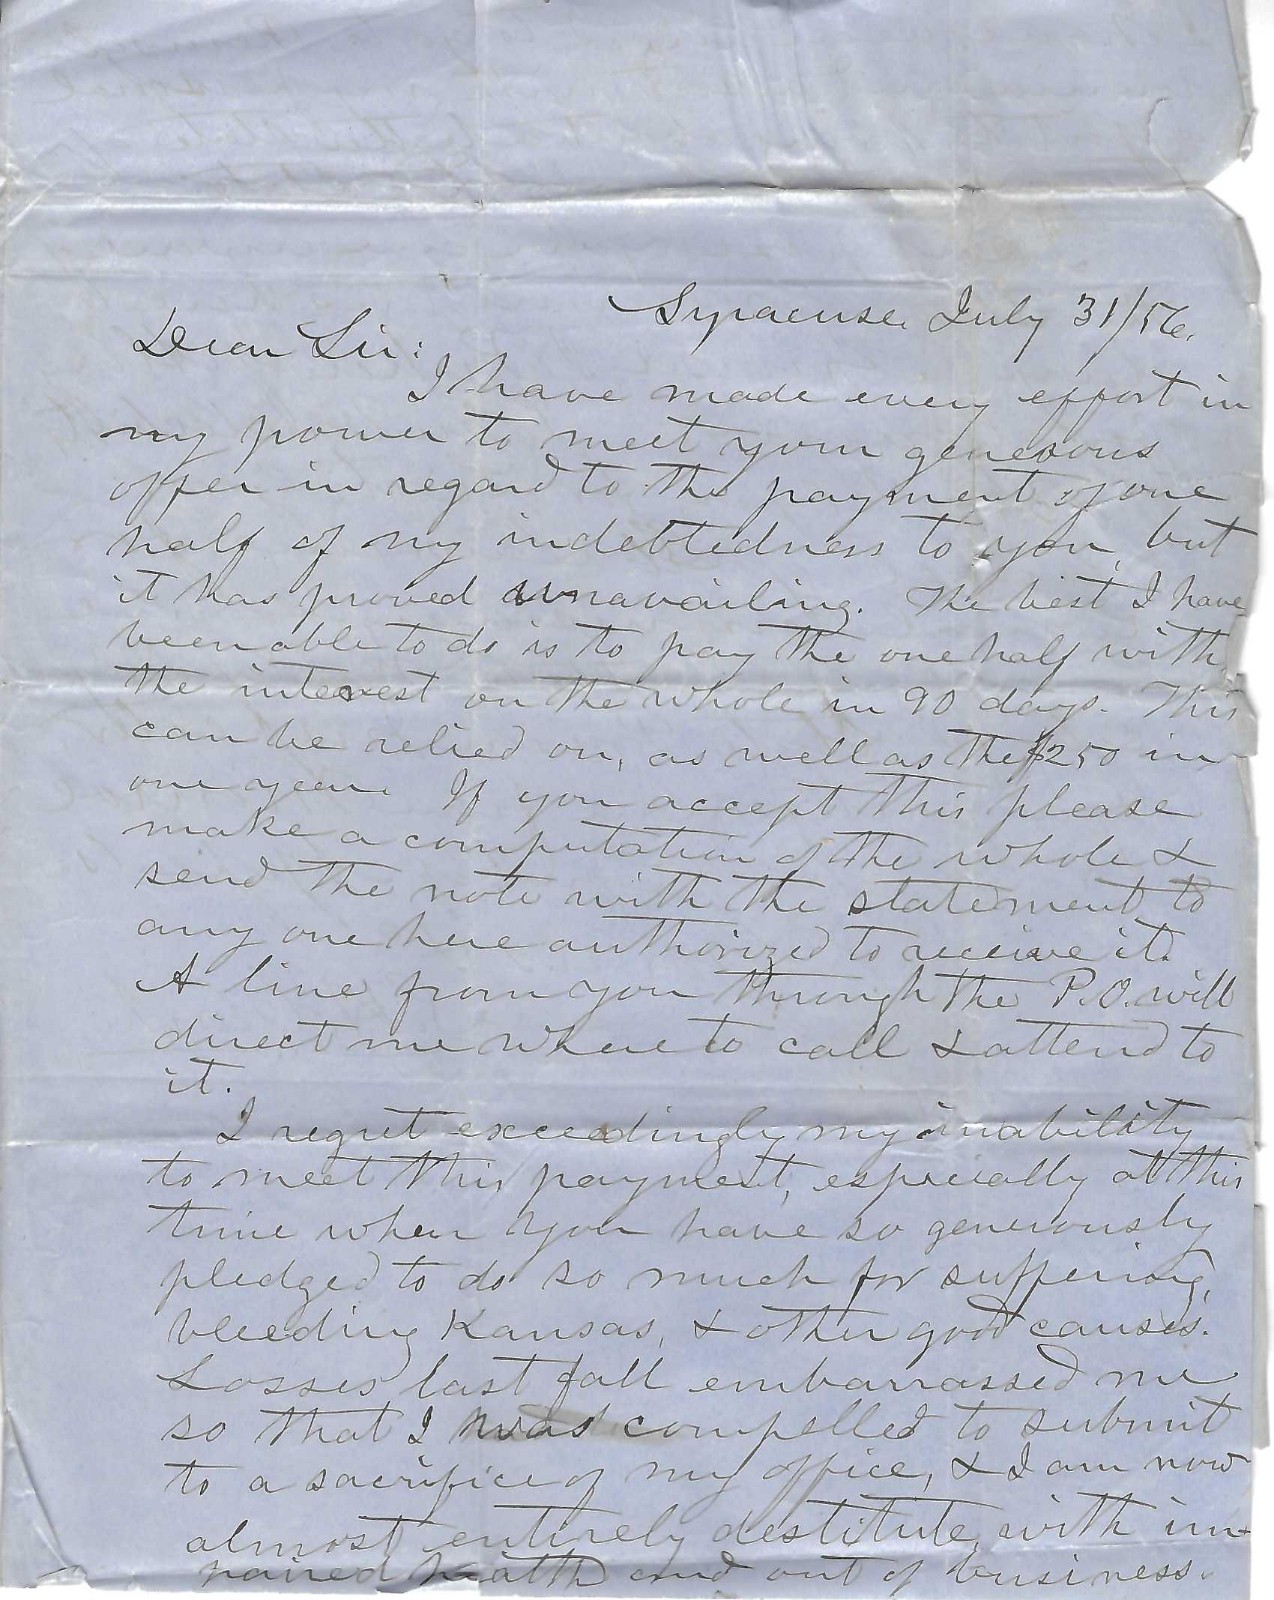 Syracuse July 31/56.
Dear Sir:
I have made every effort in
my power to meet your generous
offer in regard to the payment of one
half of my indebtedness to you, but
it has proved unavailing. The best I have
been able to do is to pay the one half with
the interest on the whole in 90 days. This
can be relied on, as well as the $250 in
one year. If you accept this please
make a computation of the whole &
send the note with the statement to
any one here authorized to receive it.
A line from you through the P.O. will
direct me where to call & attend to
it.
I regret exceedingly my inability
to meet this payment, especially at this
time when you have so generously
pledged to do so much for suffering,
bleeding Kansas, & other good causes.
Losses last fall embarrassed me
so that I was compelled to submit
to a sacrifice of my office, & I am now
almost entirely destitute, with im-
paired health and out of business.